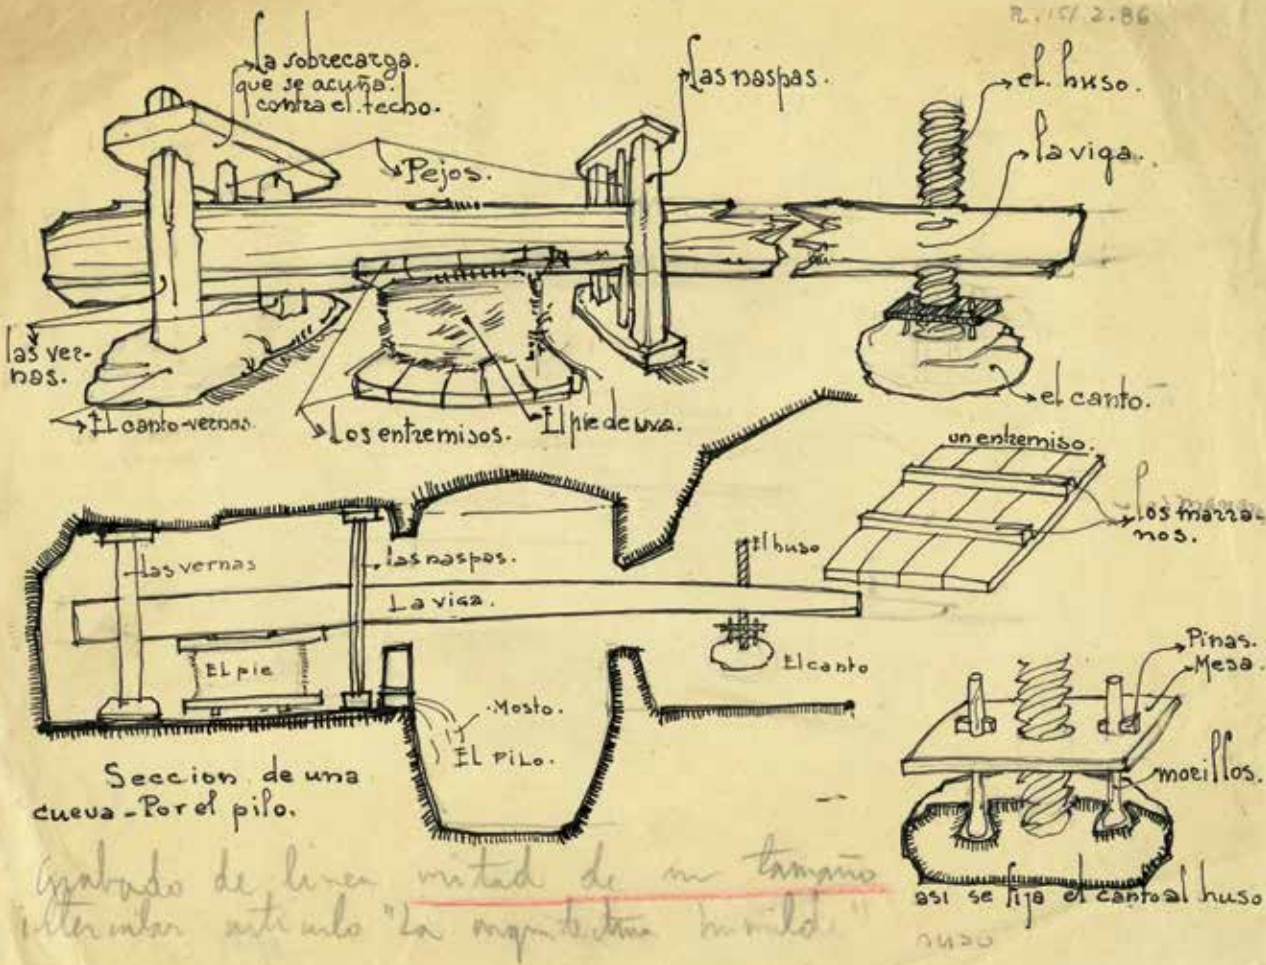 R. 151 2.86
La sobrecarga.
que se acuña
contra el techo.
Pejos.
las naspas.
el huso.
la viga.
las ver-
nas.
El canto-vernas.
los entremisos.
El pie de uva.
el canto.
un entremiso.
los marra-
nos.
las vernas
las naspas.
La viga.
El huso
El pie
El canto
Mosto.
El PiLo.
Seccion de una
cueva - Por el pilo.
Pinas.
Mesa.
morillos.
asi se fija el canto al huso
huso
Grabado de linea mitad de su tamaño
intercalar articulo "La arquitectura humilde"